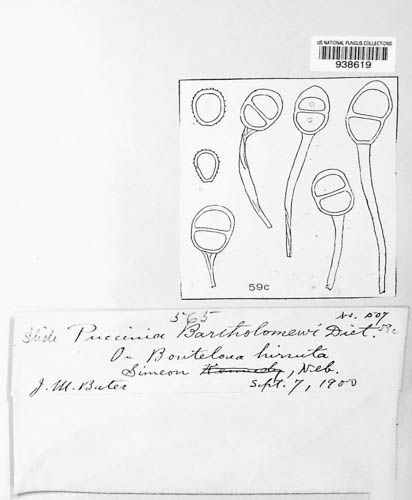 US NATIONAL FUNGUS COLLECTIONS
938619
59c
565 No. 507
Slide Puccinia Bartholomewi Diet. 59c
On Bouteloua hirsuta
Simeon Kennedy, Neb.
J. M. Bates Sept. 7, 1900